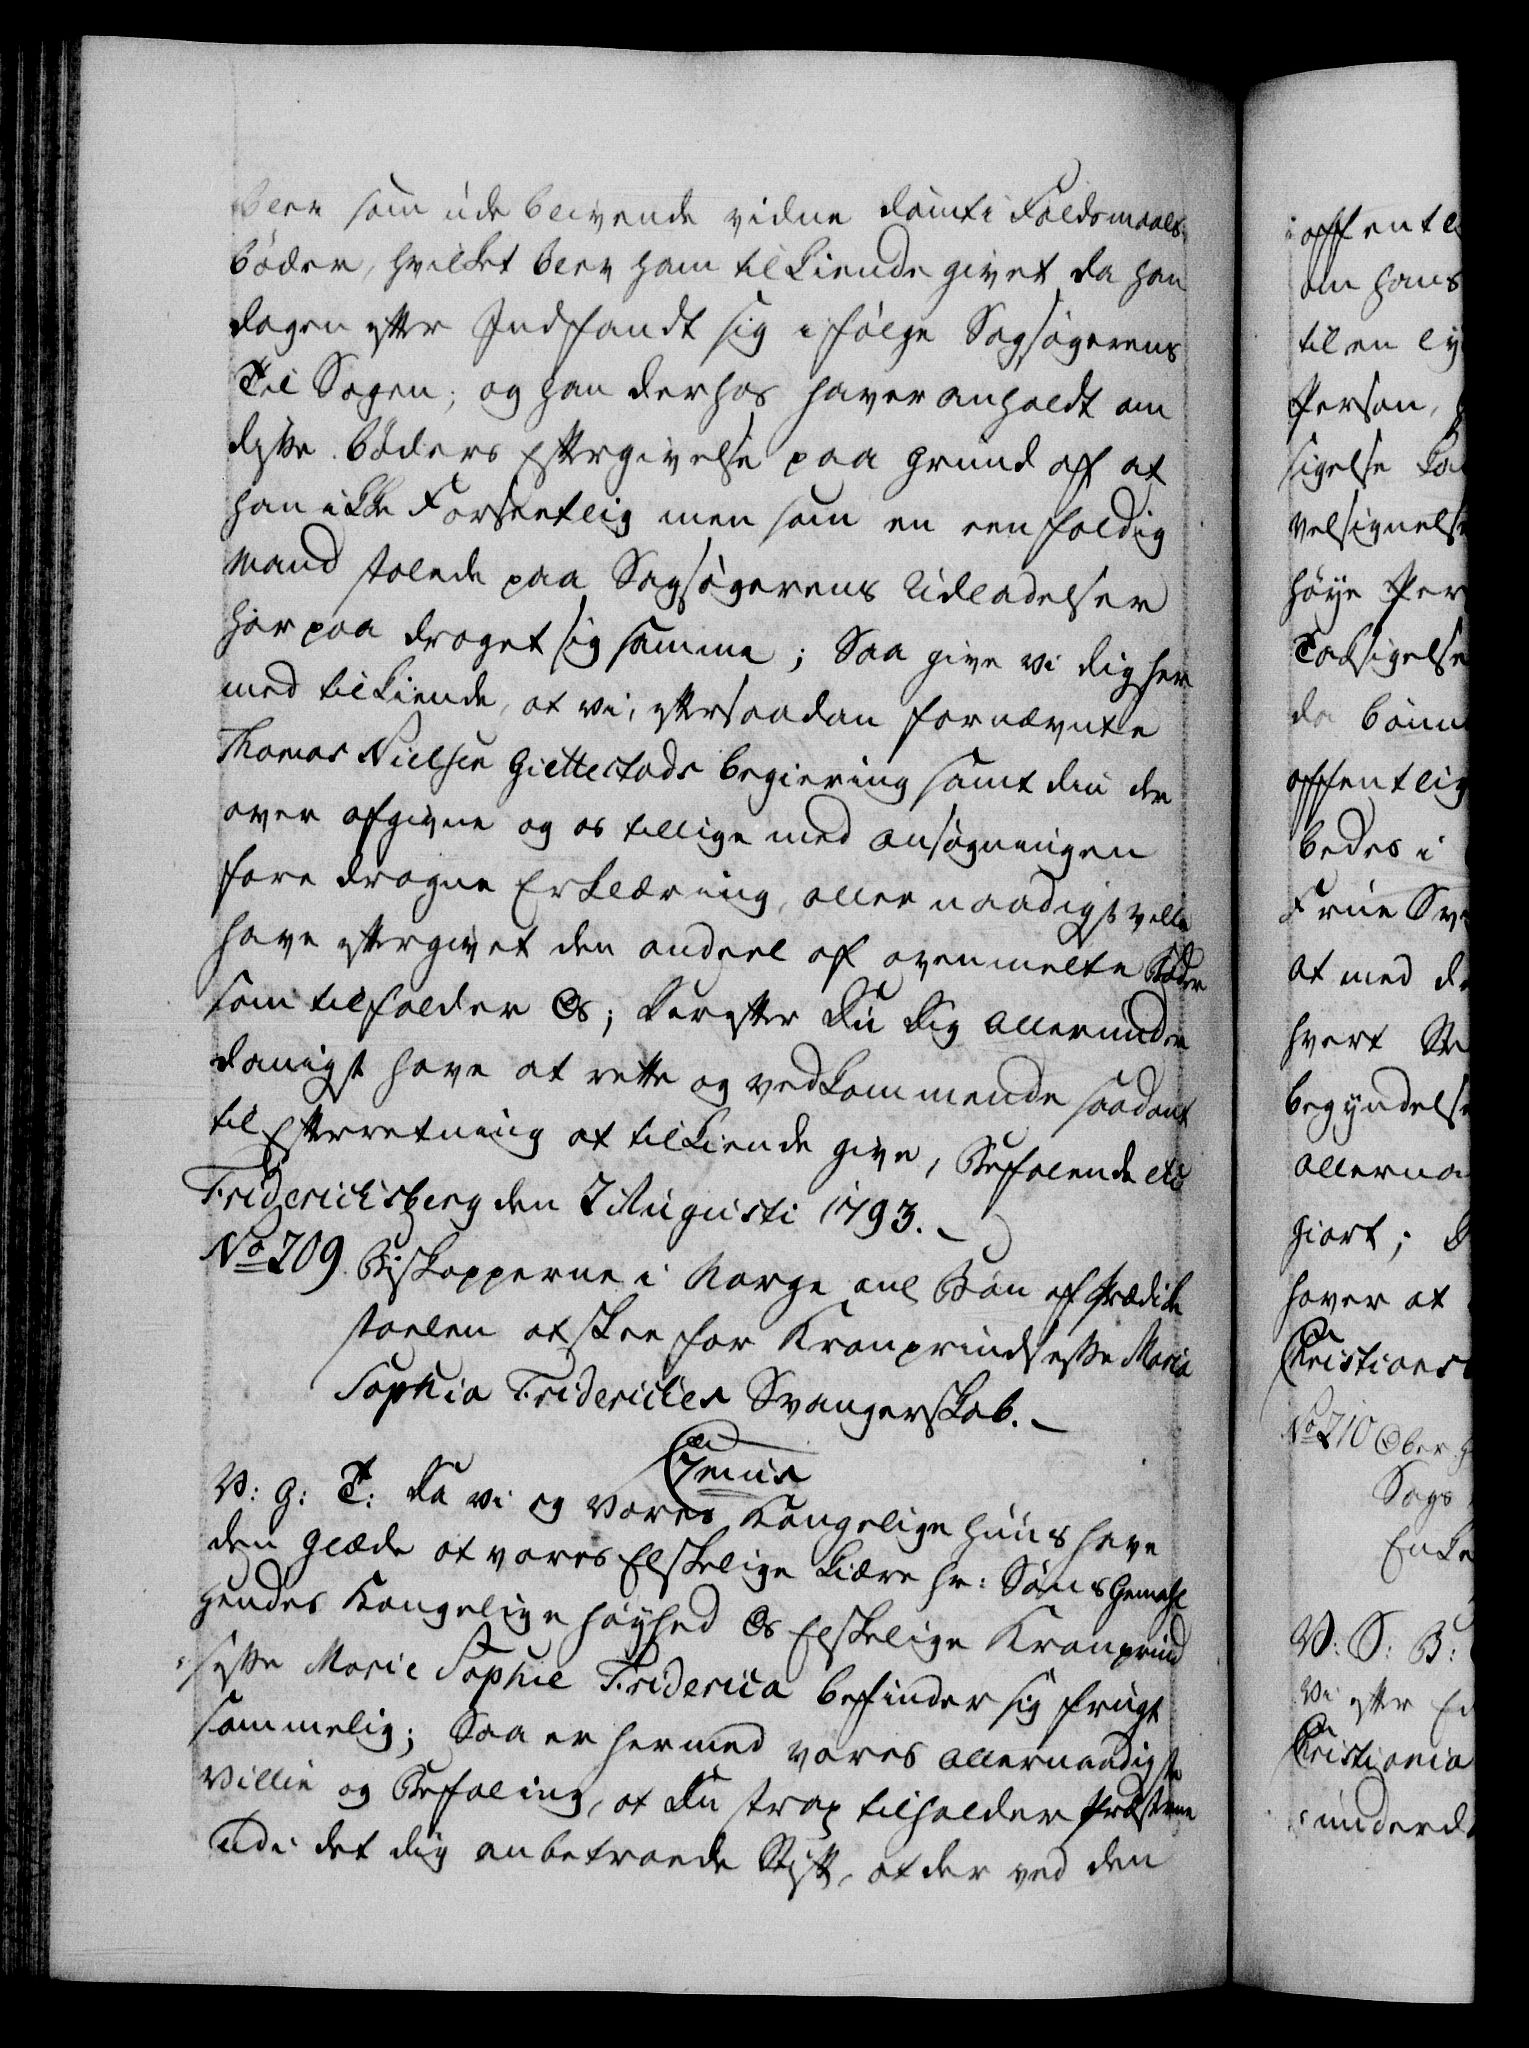 blev som udeblivende vidne dømt i Faldsmaals-
bøder, hvilket blev ham tilkiende givet da han
dagen efter Indfandt sig i følge Sagsøgerens
Til Sagen; og han derhos haver anholdt om
disse bøders Eftergivelse paa grund af at
han ikke Forsetlig men som en eenfoldig
Mand stolede paa Sagsøgerens Udladelser
har paa draget sig samme; Saa give vi dig her
med tilkiende, at vi, efter saadan fornævnte
Thomas Nielsen Giettestads begiering samt din der
over afgivne og os tillige med ansøgningen
fore dragne Erklæring, allernaadigst ville
have eftergivet den andeel af ovenmelte Bøder
som tilfalder Os; Derefter Du Dig allerunder
danigst have at rette og vedkommende saadant
til Efterretning at tilkiende give, Befalende etc
Friderichsberg den 2 Augusti 1793.
No 209. Biskopperne i Norge anl Bøn af Prædike
stolen at skee for Kronprindsesse Maria
Sophia Fridericies Svangerskab.
Gemis
V: G: T: Da vi og vores Kongelige Huus have
den Glæde at vores Elskelige kiære Hr: Søns Gemahl
Hendes Kongelige Høyhed Os Elskelige Kronprind
sesse Marie Sophie Friderica befinder sig frugt
sommelig; Saa er hermed vores allernaadigste
Villie og Befaling, at Du strax tilholder Præsterne
udi det dig anbetroede Stift, at der ved den
offentl
om hans
til en ly
Person,
sigelse
velsignelse
høye Per
Taksigelse
da bønn
offentlig
bedes i
Frue
at med
hvert
begyndelse
allerna
giort;
haver at
Christians
No 210 Ober
Sags
Enke
V: S: B:
Vi efter
Christiania
underd